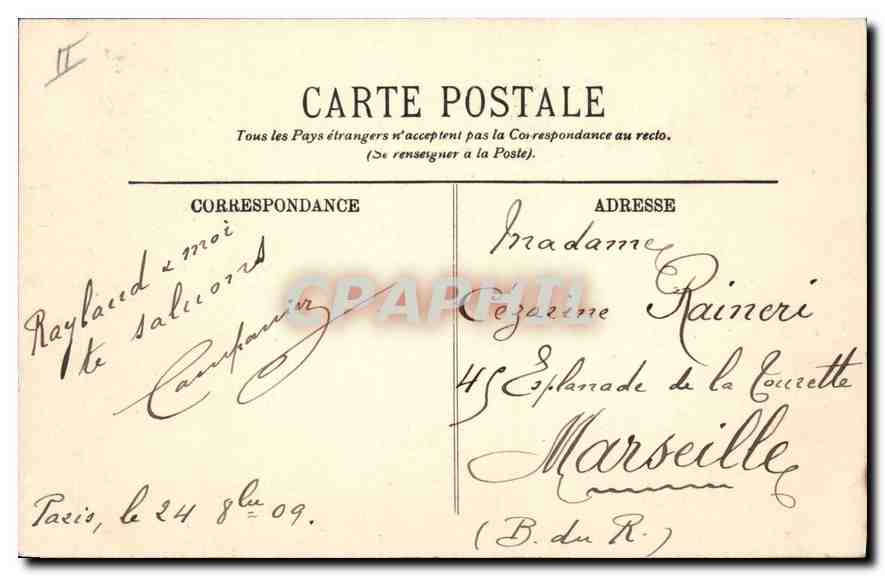 II
CARTE POSTALE
Tous les Pays étrangers n'acceptent pas la Correspondance au recto.
(Se renseigner à la Poste).
CORRESPONDANCE
Raybaud & moi
te saluons
Campanier
Paris, le 24 8bre 09.
ADRESSE
Madame
Cézarine Raineri
45 Esplanade de la Tourette
Marseille
(B. du R.)
CPAPHIL